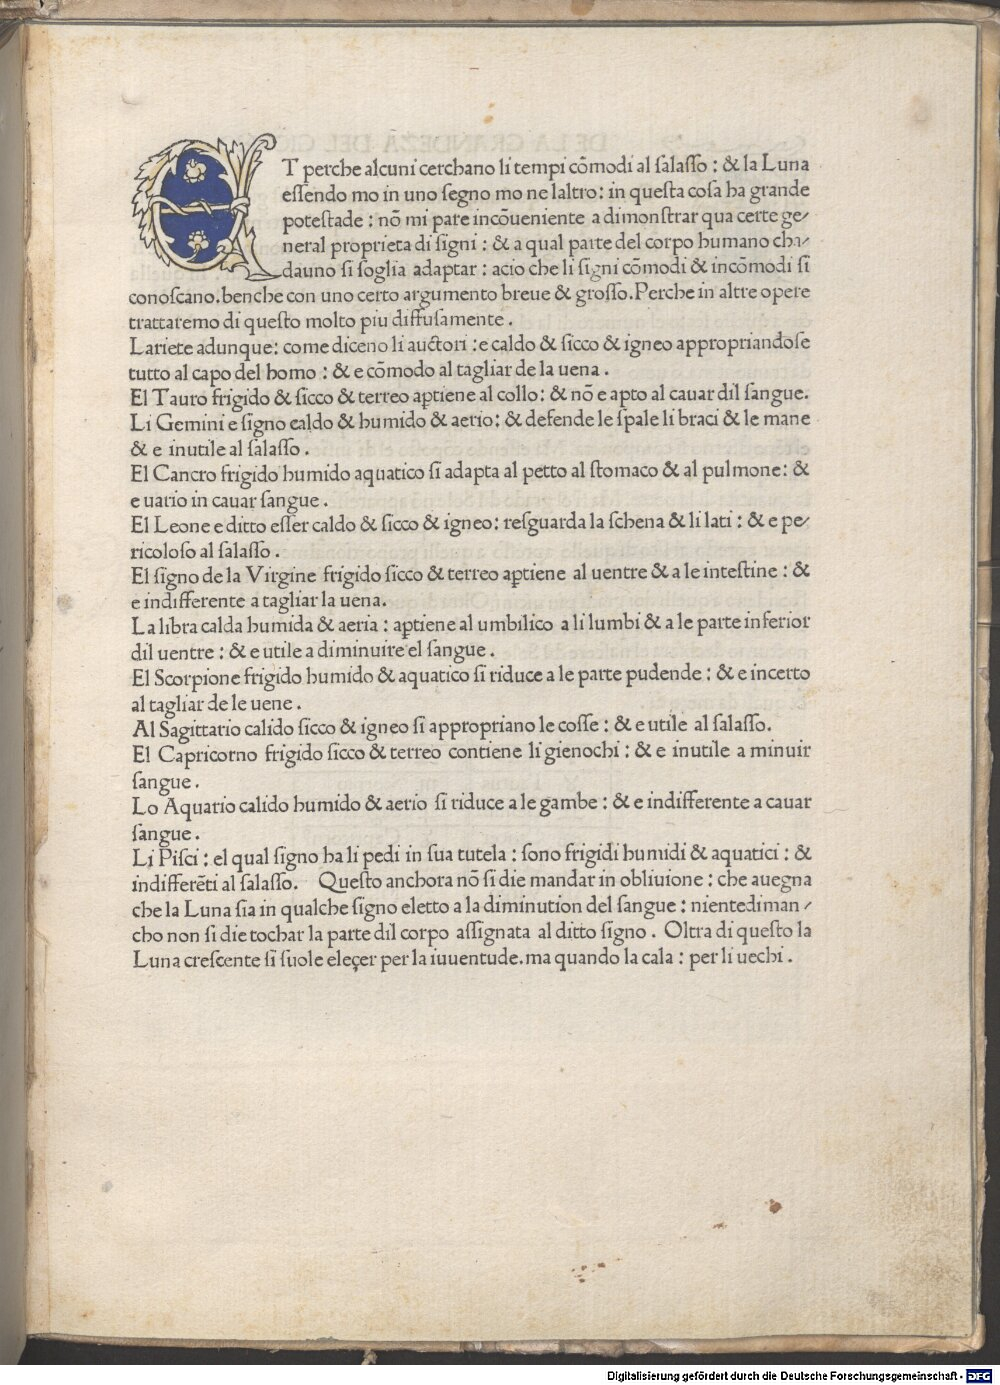 ET perche alcuni cerchano li tempi cõmodi al ſalaſſo : & la Luna
eſſendo mo in uno ſegno mo ne laltro : in queſta coſa ha grande
poteſtade : nõ mi pare incõueniente a dimonſtrar qua certe ge⸗
neral proprieta di ſigni : & a qual parte del corpo humano cha⸗
dauno ſi ſoglia adaptar : acio che li ſigni cõmodi & incõmodi ſi
conoſcano. benche con uno certo argumento breue & groſſo. Perche in altre opere
trattaremo di queſto molto piu diffuſamente .
Lariete adunque : come diceno li auctori : e caldo & ſicco & igneo appropriandoſe
tutto al capo del homo : & e cõmodo al tagliar de la uena .
El Tauro frigido & ſicco & terreo aptiene al collo : & nõ e apto al cauar dil ſangue.
Li Gemini e ſigno caldo & humido & aerio : & defende le ſpale li braci & le mane
& e inutile al ſalaſſo .
El Cancro frigido humido aquatico ſi adapta al petto al ſtomaco & al pulmone : &
e uario in cauar ſangue .
El Leone e ditto eſſer caldo & ſicco & igneo : reſguarda la ſchena & li lati : & e pe⸗
ricoloſo al ſalaſſo .
El ſigno de la Virgine frigido ſicco & terreo aptiene al uentre & a le inteſtine : &
e indifferente a tagliar la uena.
La libra calda humida & aeria : aptiene al umbilico a li lumbi & a le parte inferior
dil uentre : & e utile a diminuire el ſangue .
El Scorpione frigido humido & aquatico ſi riduce a le parte pudende : & e incerto
al tagliar de le uene .
Al Sagittario calido ſicco & igneo ſi appropriano le coſſe : & e utile al ſalaſſo.
El Capricorno frigido ſicco & terreo contiene li gienochi : & e inutile a minuir
ſangue .
Lo Aquario calido humido & aerio ſi riduce a le gambe : & e indifferente a cauar
ſangue .
Li Piſci : el qual ſigno ha li pedi in ſua tutela : ſono frigidi humidi & aquatici : &
indifferẽti al ſalaſſo. Queſto anchora nõ ſi die mandar in obliuione : che auegna
che la Luna ſia in qualche ſigno eletto a la diminution del ſangue : nientediman⸗
cho non ſi die tochar la parte dil corpo aſſignata al ditto ſigno . Oltra di queſto la
Luna creſcente ſi ſuole eleçer per la iuuentude. ma quando la cala : per li uechi .
Digitalisierung gefördert durch die Deutsche Forschungsgemeinschaft - DFG